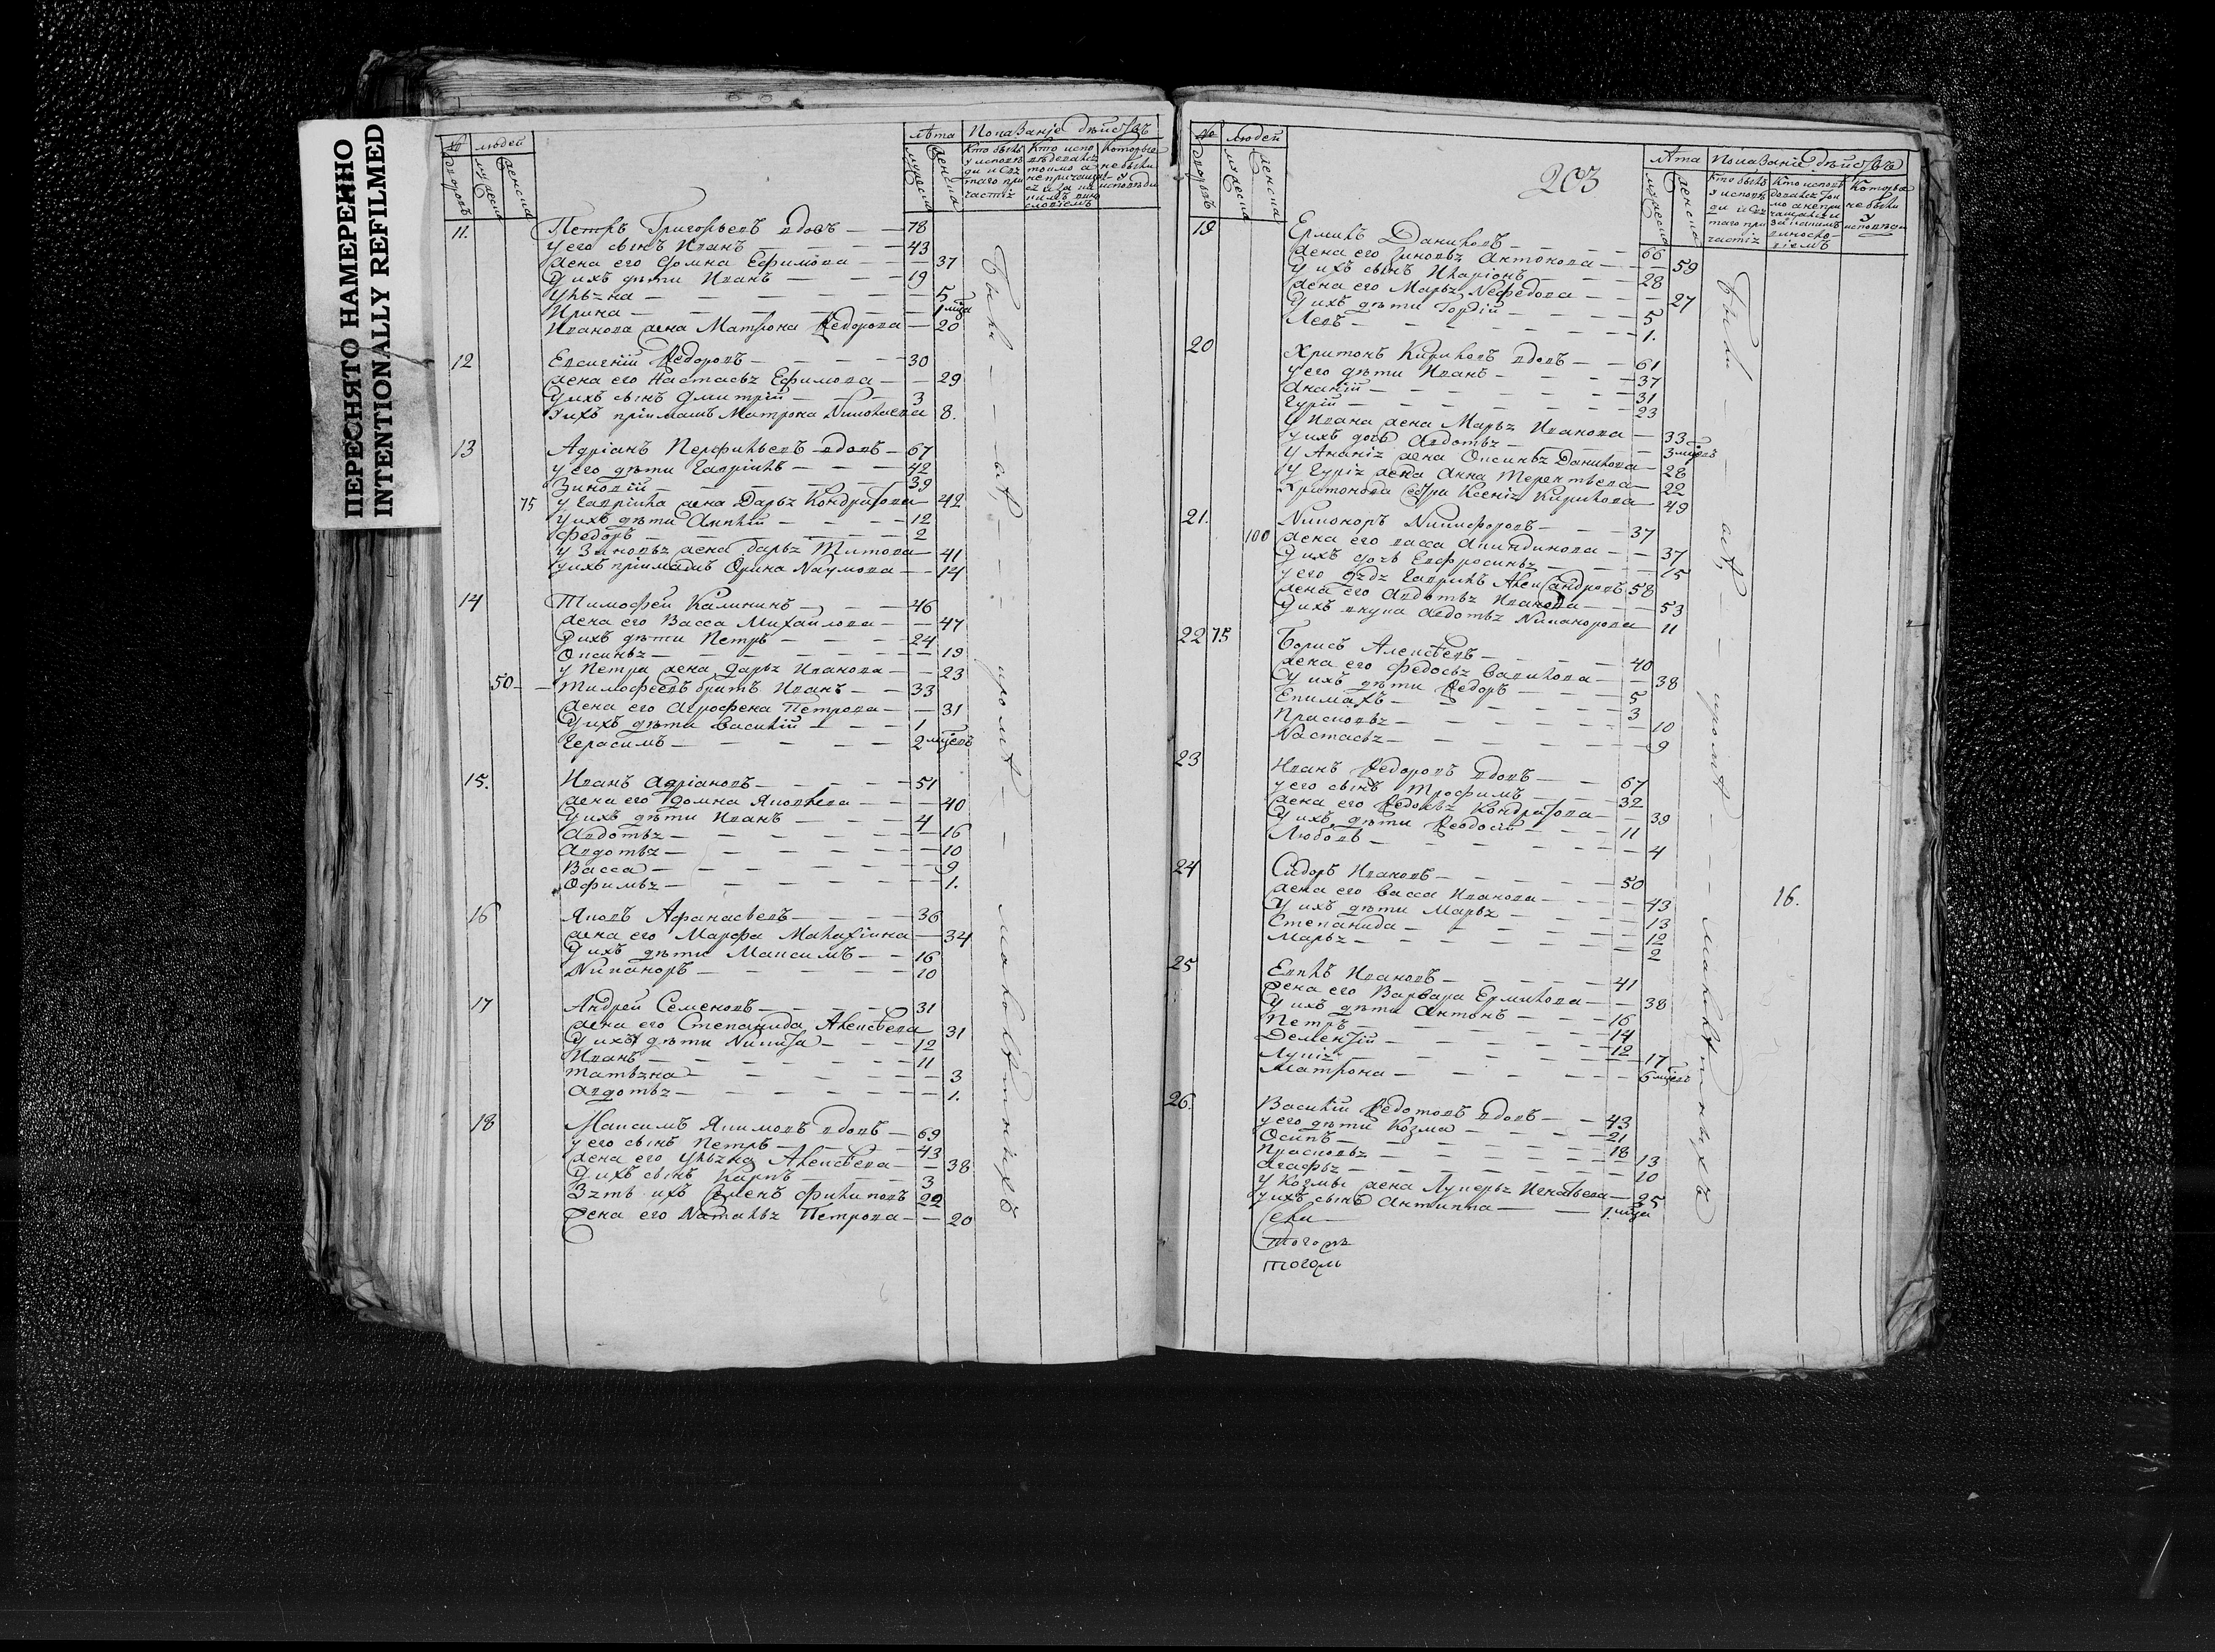 ПЕРЕСНЯТО НАМЕРЕННО
INTENTIONALLY REFILMED
№ людей
дворовъ мужеска женска
лѣта Показанїе дѣйствъ
мужеска женска
Кто были у исповѣди и святаго причастїя
Кто исповѣдовался токмо а не причащался и за какимъ винословїемъ
которые не были у исповѣди
11. Петръ Григорьевъ вдовъ — 78
у его сынъ Иванъ — 43
жена его Домна Ефимова — 37
У ихъ дѣти Иванъ — 19
Ульяна — 5
Ирина — 1 мца
Иванова жена Матрона Ѳедорова — 20
12 Евсигнїй Ѳедоровъ — 30
жена его Настасья Ефимова — 29
У ихъ сынъ Дмитрїй — 3
У ихъ прїимышъ Матрона Николаева 8.
13 Адрїанъ Перфильевъ вдовъ — 67
у его дѣти Гаврїилъ — 42
Зиновїй — 39
75 у Гаврїила жена Дарья Кондратова — 42
У ихъ дѣти Аникїй — 12
Федоръ — 2
у Зиновья жена Дарья Титова — 41
у ихъ прїимышъ Орина Наумова — 14
14 Тимофей Калининъ — 46
жена его Васса Михайлова — 47
У ихъ дѣти Петръ — 24
Оксинья — 19
у Петра жена Дарья Иванова — 23
50 — Тимофеевъ братъ Иванъ — 33
жена его Агрофена Петрова — 31
У ихъ дѣти Василїй — 1
Герасимъ — 2 мцовъ
15. Иванъ Адрїановъ — 51
жена его Домна Яковлева — 40
У ихъ дѣти Иванъ — 4
Авдотья — 16
Авдотья — 10
Васса — 9
Офимья — 1.
16 Яковъ Афанасьевъ — 36
жена его Марфа Малахїина — 34
У ихъ дѣти Максимъ — 16
Никаноръ — 10
17 Андрей Семеновъ — 31
жена его Степанида Алексѣева 31
У ихъ дѣти Никита — 12
Иванъ — 11
Татьяна — 3
Авдотья — 1.
18 Максимъ Якимовъ вдовъ — 69
у его сынъ Петръ — 43
жена его Ульяна Алексѣева — 38
У ихъ сынъ Карпъ — 3
Зять ихъ Семенъ Филиповъ 22
Жена его Наталья Петрова — 20
Были — всѣ — кромѣ — малолѣтнихъ
203
№ людей
дворовъ мужеска женска
лѣта Показанїе дѣйствъ
мужеска женска
Кто были у исповѣди и святаго причастїя
Кто исповѣдовался токмо а не причащался и за какимъ винословїемъ
которые не были у исповѣди
19 Ермилъ Даниловъ — 66
жена его Зиновья Антонова — 59
У ихъ сынъ Иларїонъ — 28
жена его Марья Нефедова — 27
У ихъ дѣти Гордїй — 5
Левъ — 1.
20 Хритонъ Кириловъ вдовъ — 61
у его дѣти Иванъ — 37
Ананїй — 31
Гурїй — 23
У Ивана жена Марья Иванова — 33
У ихъ дочь Авдотья — 3 мцовъ
У Ананїя жена Оксинья Данилова — 28
У Гурїя жена Анна Терентьева — 22
Хритонова сестра Ксенїя Кирилова 49
21. Никоноръ Никифоровъ — 37
100 жена его васса Акиндинова — 37
У ихъ дочь Евфросинья — 15
у его дядя Гаврилъ Александровъ 58
жена его Авдотья Иванова — 53
У ихъ внука Авдотья Никанорова 11
22 75 Борисъ Алексѣевъ — 40
жена его Федосья Савилова — 38
У ихъ дѣти Ѳедоръ — 5
Епимахъ — 3
Прасковья — 10
Настасья — 9
23 Иванъ Ѳедоровъ вдовъ — 67
у его сынъ Трофимъ — 32
жена его Ѳедосья Кондратова — 39
У ихъ дѣти Ѳеодосїй — 11
Любовь — 4
24 Сидоръ Ивановъ — 50
жена его васса Иванова — 43
У ихъ дѣти Марья — 13
Степанида — 12
Марья — 2
25 Евплъ Ивановъ — 41
Жена его Варвара Ермилова — 38
У ихъ дѣти Антонъ — 16
Петръ — 14
Дементїй — 12
Лукїя — 17
Матрона — 6 мцовъ
26. Василїй Ѳедотовъ вдовъ — 43
у его дѣти Козма — 21
Осипъ — 18
Прасковья — 13
Агафья — 10
у Козмы жена Лукерья Игнатьева — 25
у ихъ сынъ Антипа — 1. мца
Были — всѣ — кромѣ — малолѣтнихъ
16.